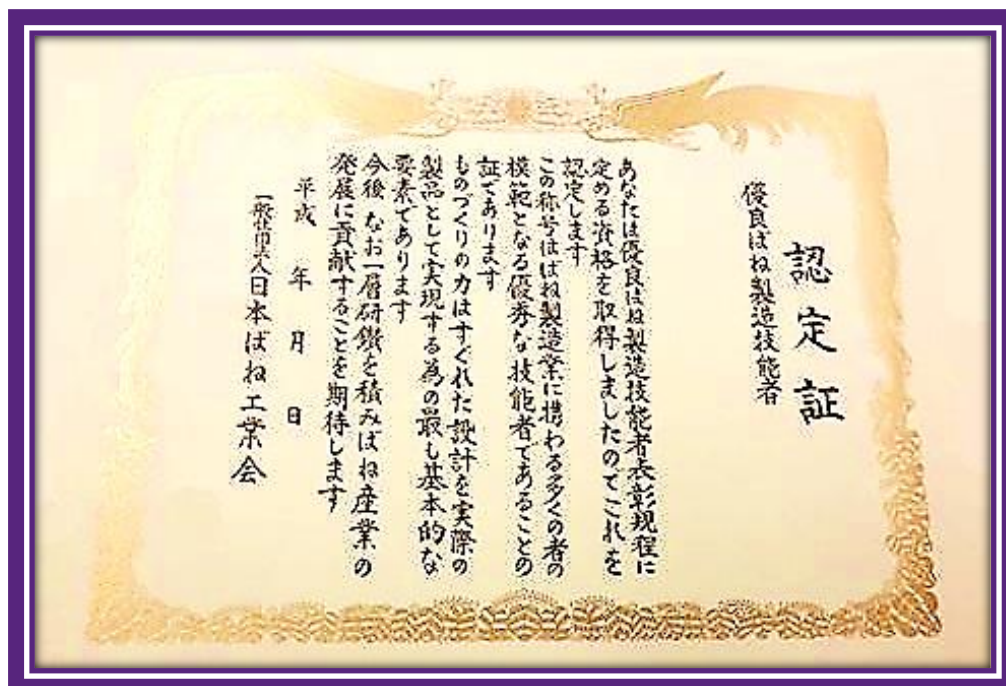 認定証
優良ばね製造技能者
あなたは優良ばね製造技能者表彰規程に
定める資格を取得しましたのでこれを
認定します
この称号はばね製造業に携わる多くの者の
模範となる優秀な技能者であることの
証であります
ものづくりの力はすぐれた設計を実際の
製品として実現する為の最も基本的な
要素であります
今後なお一層研鑽を積みばね産業の
発展に貢献することを期待します
平成 年 月 日
一般社団法人日本ばね工業会